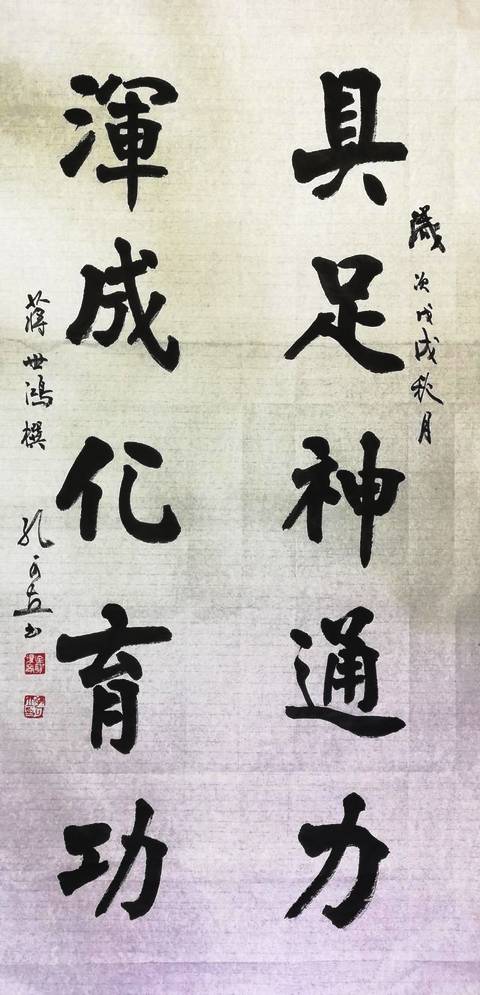 歲次戊戌秋月
具足神通力
渾成化育功
蔣世鴻撰
孔可立書